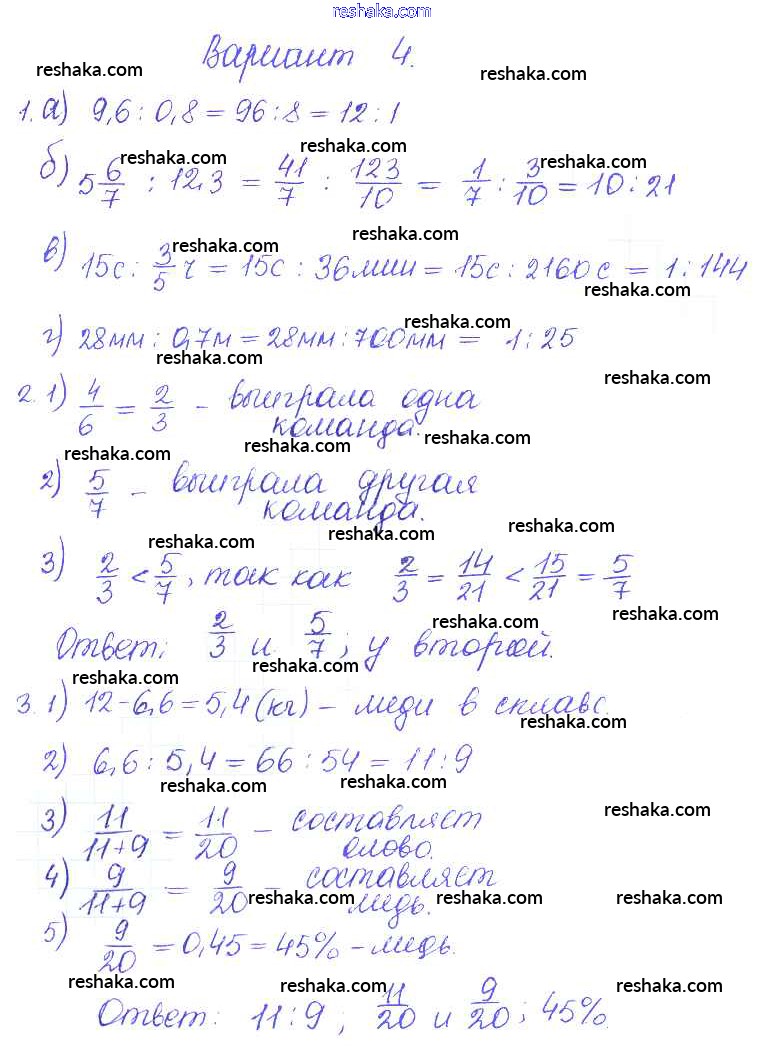 reshaka.com
Вариант 4.
reshaka.com reshaka.com
1. а) 9,6 : 0,8 = 96 : 8 = 12 : 1
reshaka.com
б) 5 6/7 : 12,3 = 41/7 : 123/10 = 1/7 : 3/10 = 10 : 21
reshaka.com reshaka.com
reshaka.com
в) 15с : 3/5 ч = 15с : 36мин = 15с : 2160с = 1 : 144
reshaka.com
reshaka.com
reshaka.com
г) 28мм : 0,7м = 28мм : 700мм = 1 : 25
reshaka.com
reshaka.com
2. 1) 4/6 = 2/3 - выиграла одна
команда.
reshaka.com reshaka.com
reshaka.com
2) 5/7 - выиграла другая
команда.
reshaka.com
reshaka.com
3) 2/3 < 5/7, так как 2/3 = 14/21 < 15/21 = 5/7
reshaka.com
reshaka.com
Ответ: 2/3 и 5/7; у второй.
reshaka.com
reshaka.com
3. 1) 12 - 6,6 = 5,4 (кг) - меди в сплаве.
reshaka.com
2) 6,6 : 5,4 = 66 : 54 = 11 : 9
reshaka.com reshaka.com
reshaka.com
3) 11/11+9 = 11/20 - составляет
олово.
4) 9/11+9 = 9/20 - составляет
медь.
reshaka.com reshaka.com reshaka.com
5) 9/20 = 0,45 = 45% - медь.
reshaka.com reshaka.com reshaka.com
Ответ: 11 : 9; 11/20 и 9/20; 45%.